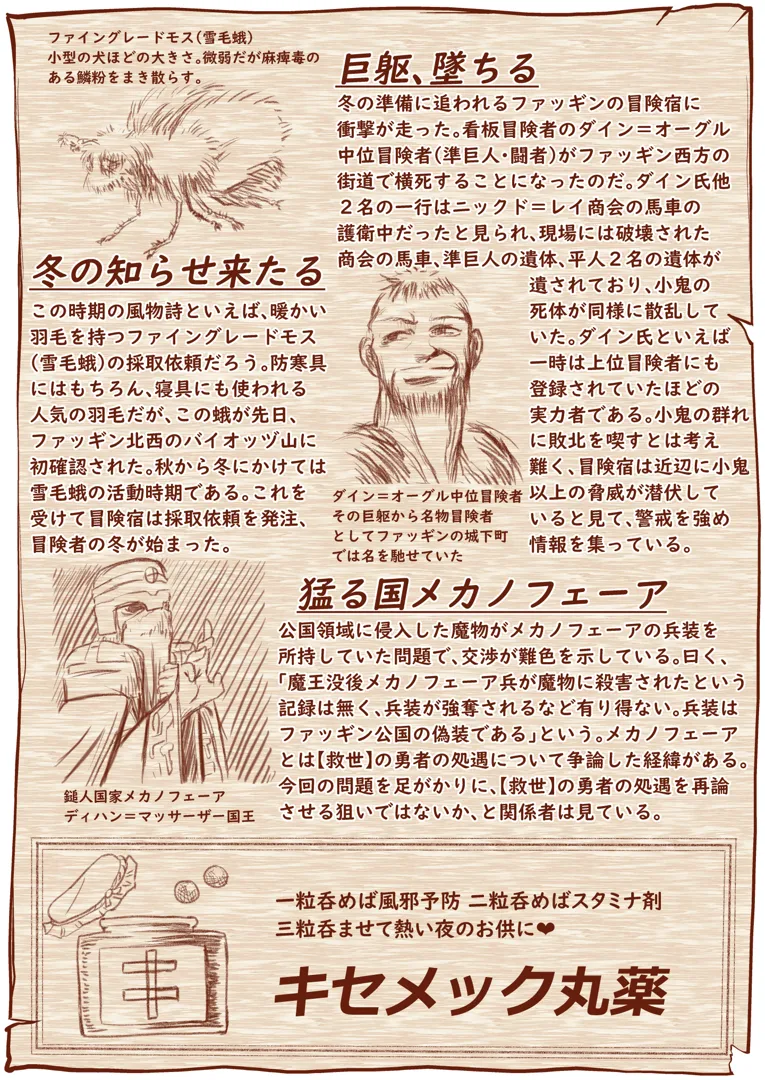 ファイングレードモス(雪毛蛾)
小型の犬ほどの大きさ。微弱だが麻痺毒の
ある鱗粉をまき散らす。
巨躯、墜ちる
冬の準備に追われるファッギンの冒険宿に
衝撃が走った。看板冒険者のダイン＝オーグル
中位冒険者(準巨人・闘者)がファッギン西方の
街道で横死することになったのだ。ダイン氏他
２名の一行はニックド＝レイ商会の馬車の
護衛中だったと見られ、現場には破壊された
商会の馬車、準巨人の遺体、平人２名の遺体が
遺されており、小鬼の
死体が同様に散乱して
いた。ダイン氏といえば
一時は上位冒険者にも
登録されていたほどの
実力者である。小鬼の群れ
に敗北を喫すとは考え
難く、冒険宿は近辺に小鬼
以上の脅威が潜伏して
いると見て、警戒を強め
情報を集っている。
ダイン＝オーグル中位冒険者
その巨躯から名物冒険者
としてファッギンの城下町
では名を馳せていた
冬の知らせ来たる
この時期の風物詩といえば、暖かい
羽毛を持つファイングレードモス
(雪毛蛾)の採取依頼だろう。防寒具
にはもちろん、寝具にも使われる
人気の羽毛だが、この蛾が先日、
ファッギン北西のバイオッヅ山に
初確認された。秋から冬にかけては
雪毛蛾の活動時期である。これを
受けて冒険宿は採取依頼を発注、
冒険者の冬が始まった。
猛る国メカノフェーア
公国領域に侵入した魔物がメカノフェーアの兵装を
所持していた問題で、交渉が難色を示している。曰く、
「魔王没後メカノフェーア兵が魔物に殺害されたという
記録は無く、兵装が強奪されるなど有り得ない。兵装は
ファッギン公国の偽装である」という。メカノフェーア
とは【救世】の勇者の処遇について争論した経緯がある。
今回の問題を足がかりに、【救世】の勇者の処遇を再論
させる狙いではないか、と関係者は見ている。
鎚人国家メカノフェーア
ディハン＝マッサーザー国王
一粒呑めば風邪予防 二粒呑めばスタミナ剤
三粒呑ませて熱い夜のお供に❤
キセメック丸薬
キ